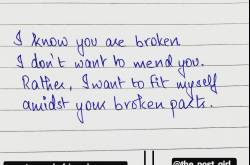 I know you are broken
I don't want to mend you.
Rather, I want to fit myself
amidst your broken parts.